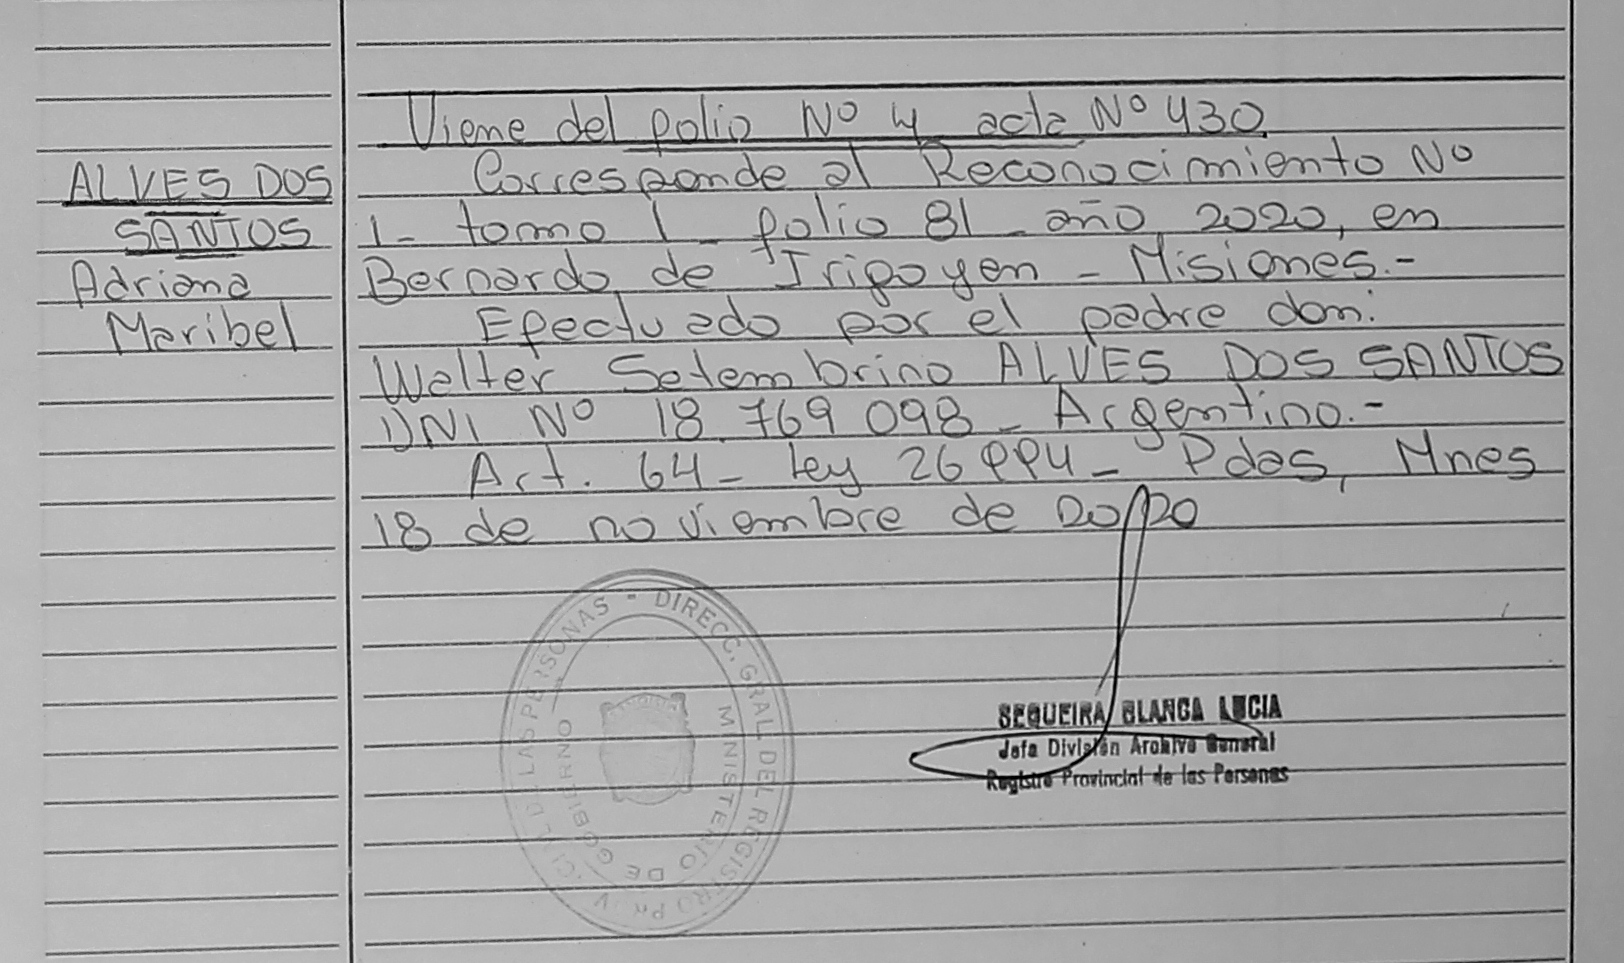 Viene del folio Nº 4 acta Nº 430
ALVES DOS
SANTOS
Adriana
Maribel
Corresponde al Reconocimiento Nº
1- tomo 1 - folio 81 - año 2020, en
Bernardo de Irigoyen - Misiones.-
Efectuado por el padre don:
Walter Setembrino ALVES DOS SANTOS
DNI Nº 18.769.098 - Argentino.-
Art. 64 - ley 26994 - Pdas, Mnes
18 de noviembre de 2020
DIRECC. GRAL. DEL REGISTRO PROV. CIVIL D LAS PERSONAS -
MINISTERIO DE GOBIERNO
SEQUEIRA BLANCA LUCIA
Jefa División Archivo General
Registro Provincial de las Personas